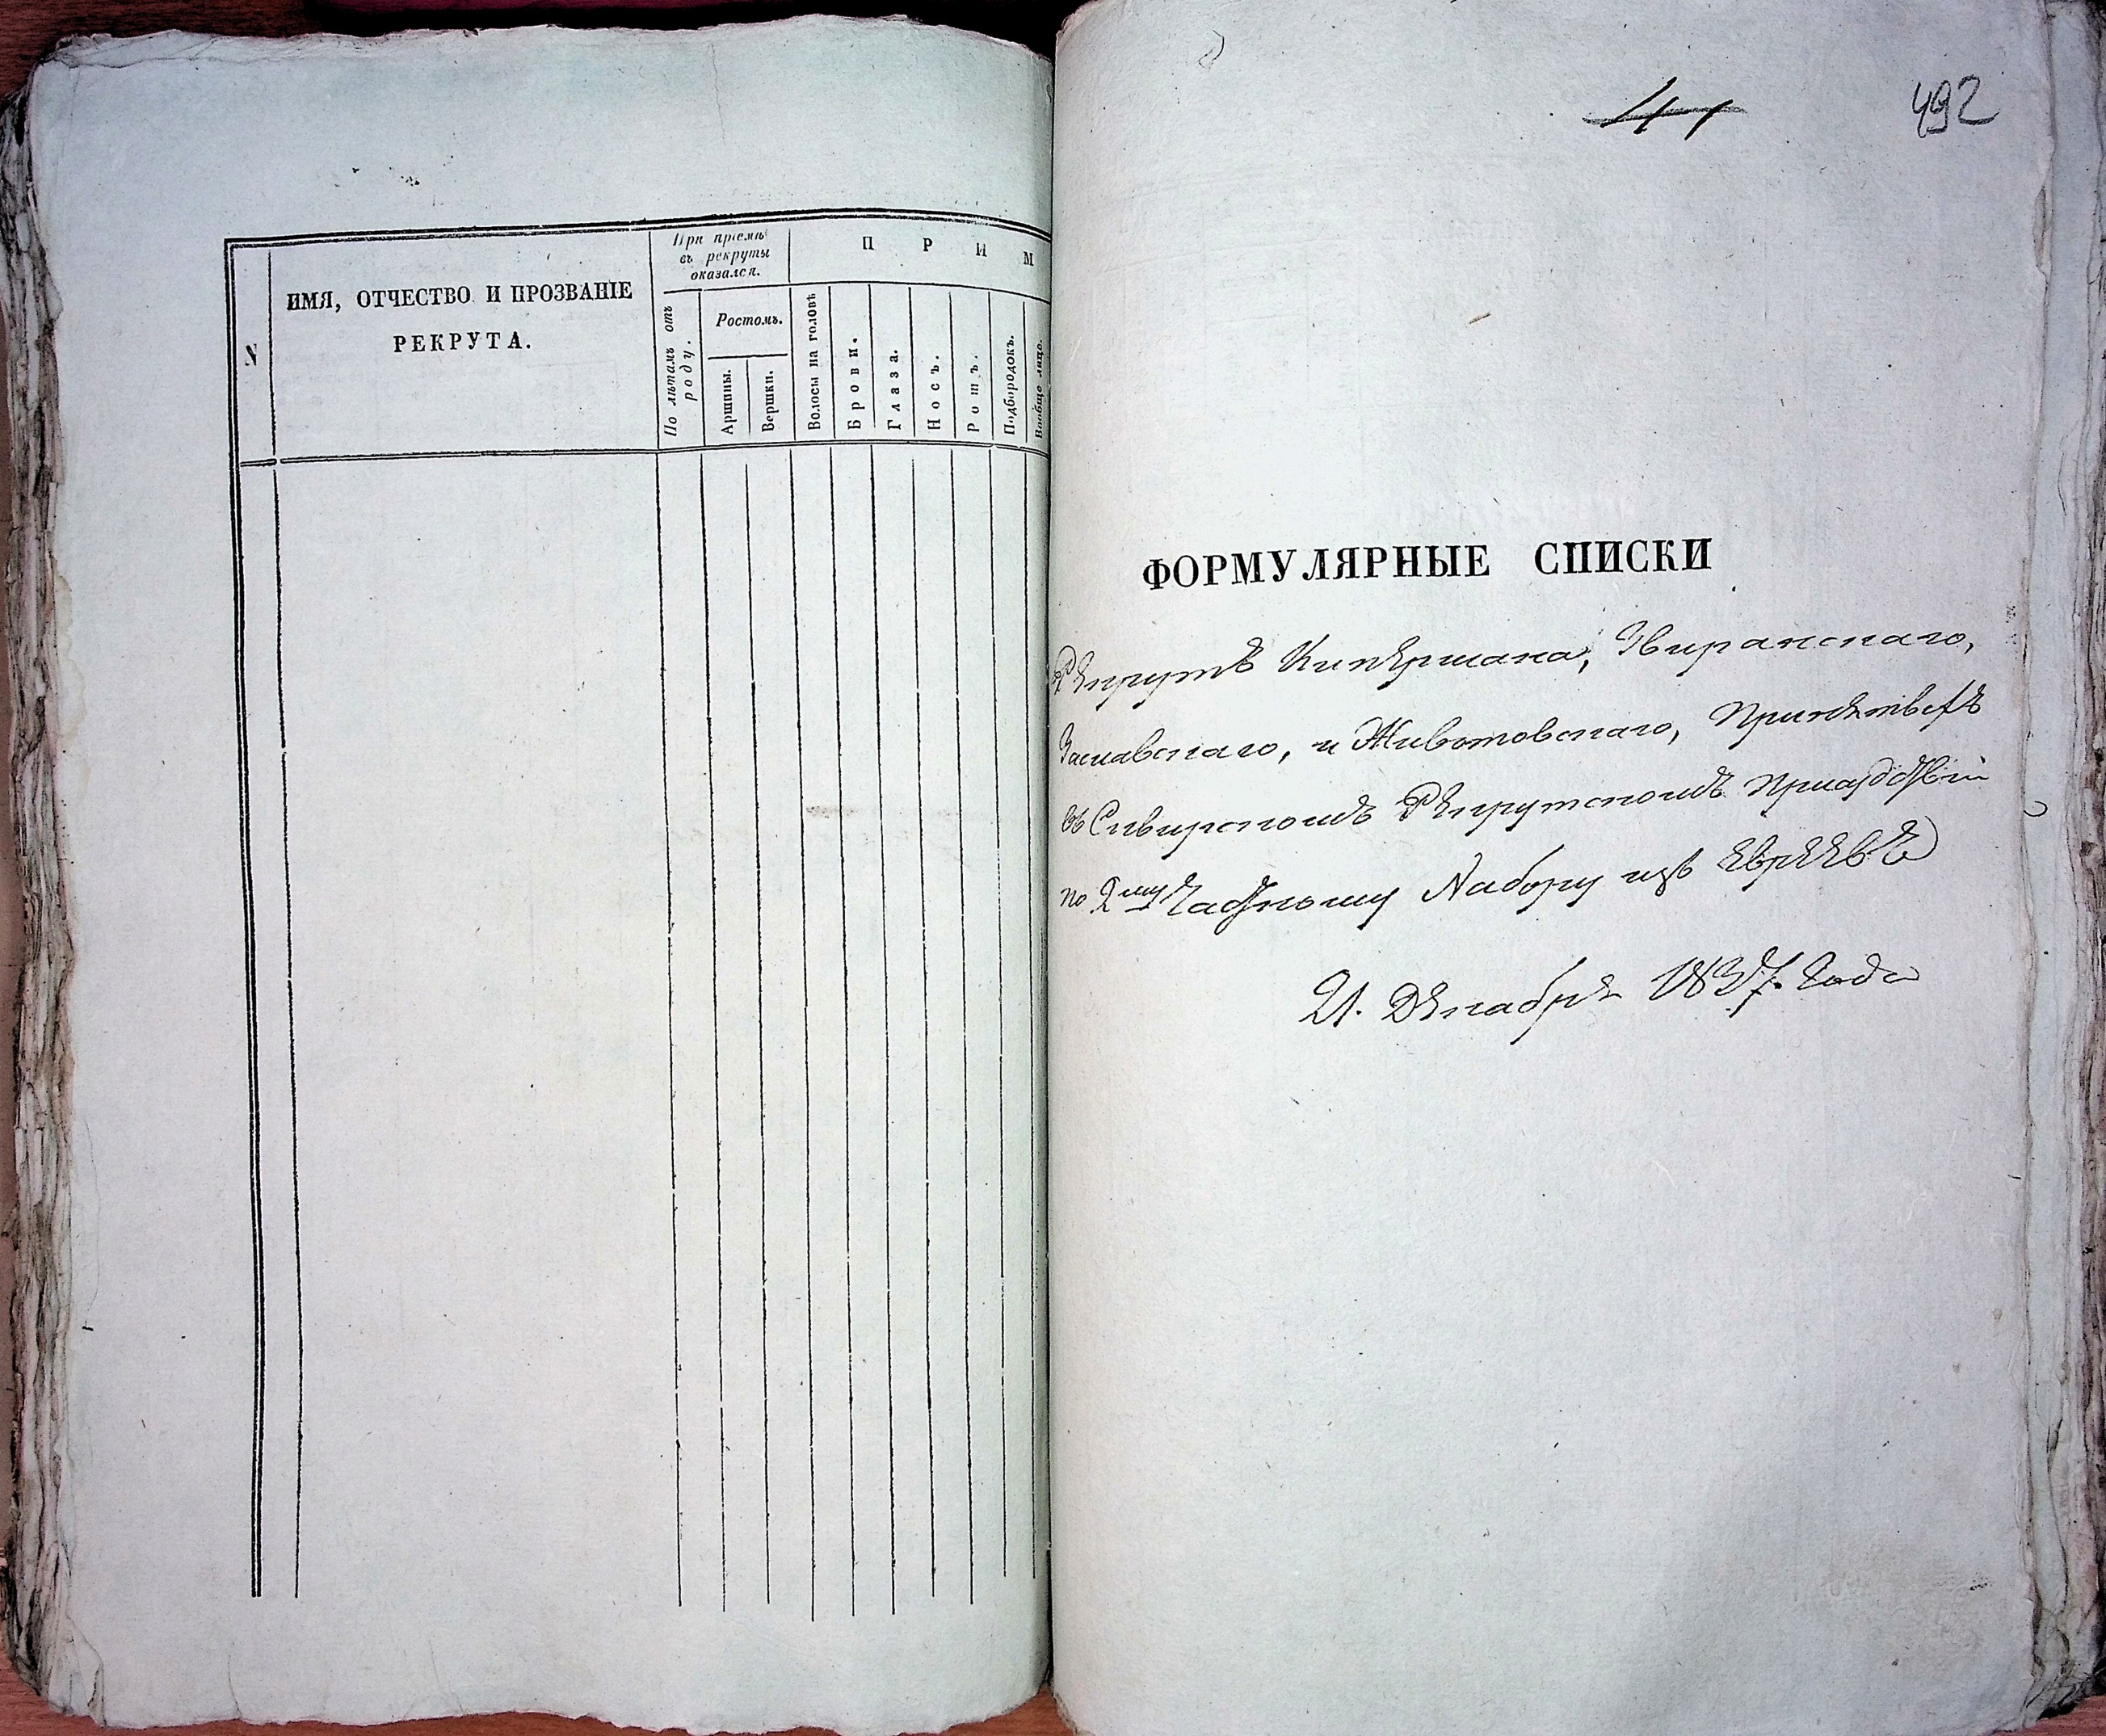 При пріемѣ
въ рекруты
оказался.
П Р И М
N
ИМЯ, ОТЧЕСТВО И ПРОЗВАНІЕ
РЕКРУТА.
По лѣтамъ отъ
роду.
Ростомъ.
Аршины.
Вершки.
Волосы на головѣ
Брови.
Глаза.
Носъ.
Ротъ.
Подбородокъ.
Вообще лицо.
492
ФОРМУЛЯРНЫЕ СПИСКИ
Рекрутъ Кипермана, Звиранскаго,
Заславскаго, и Животовскаго, принятыхъ
въ Сквирскомъ Рекрутскомъ
по 2му Частному Набору изъ Евреевъ
21. Декабря 1837. Года